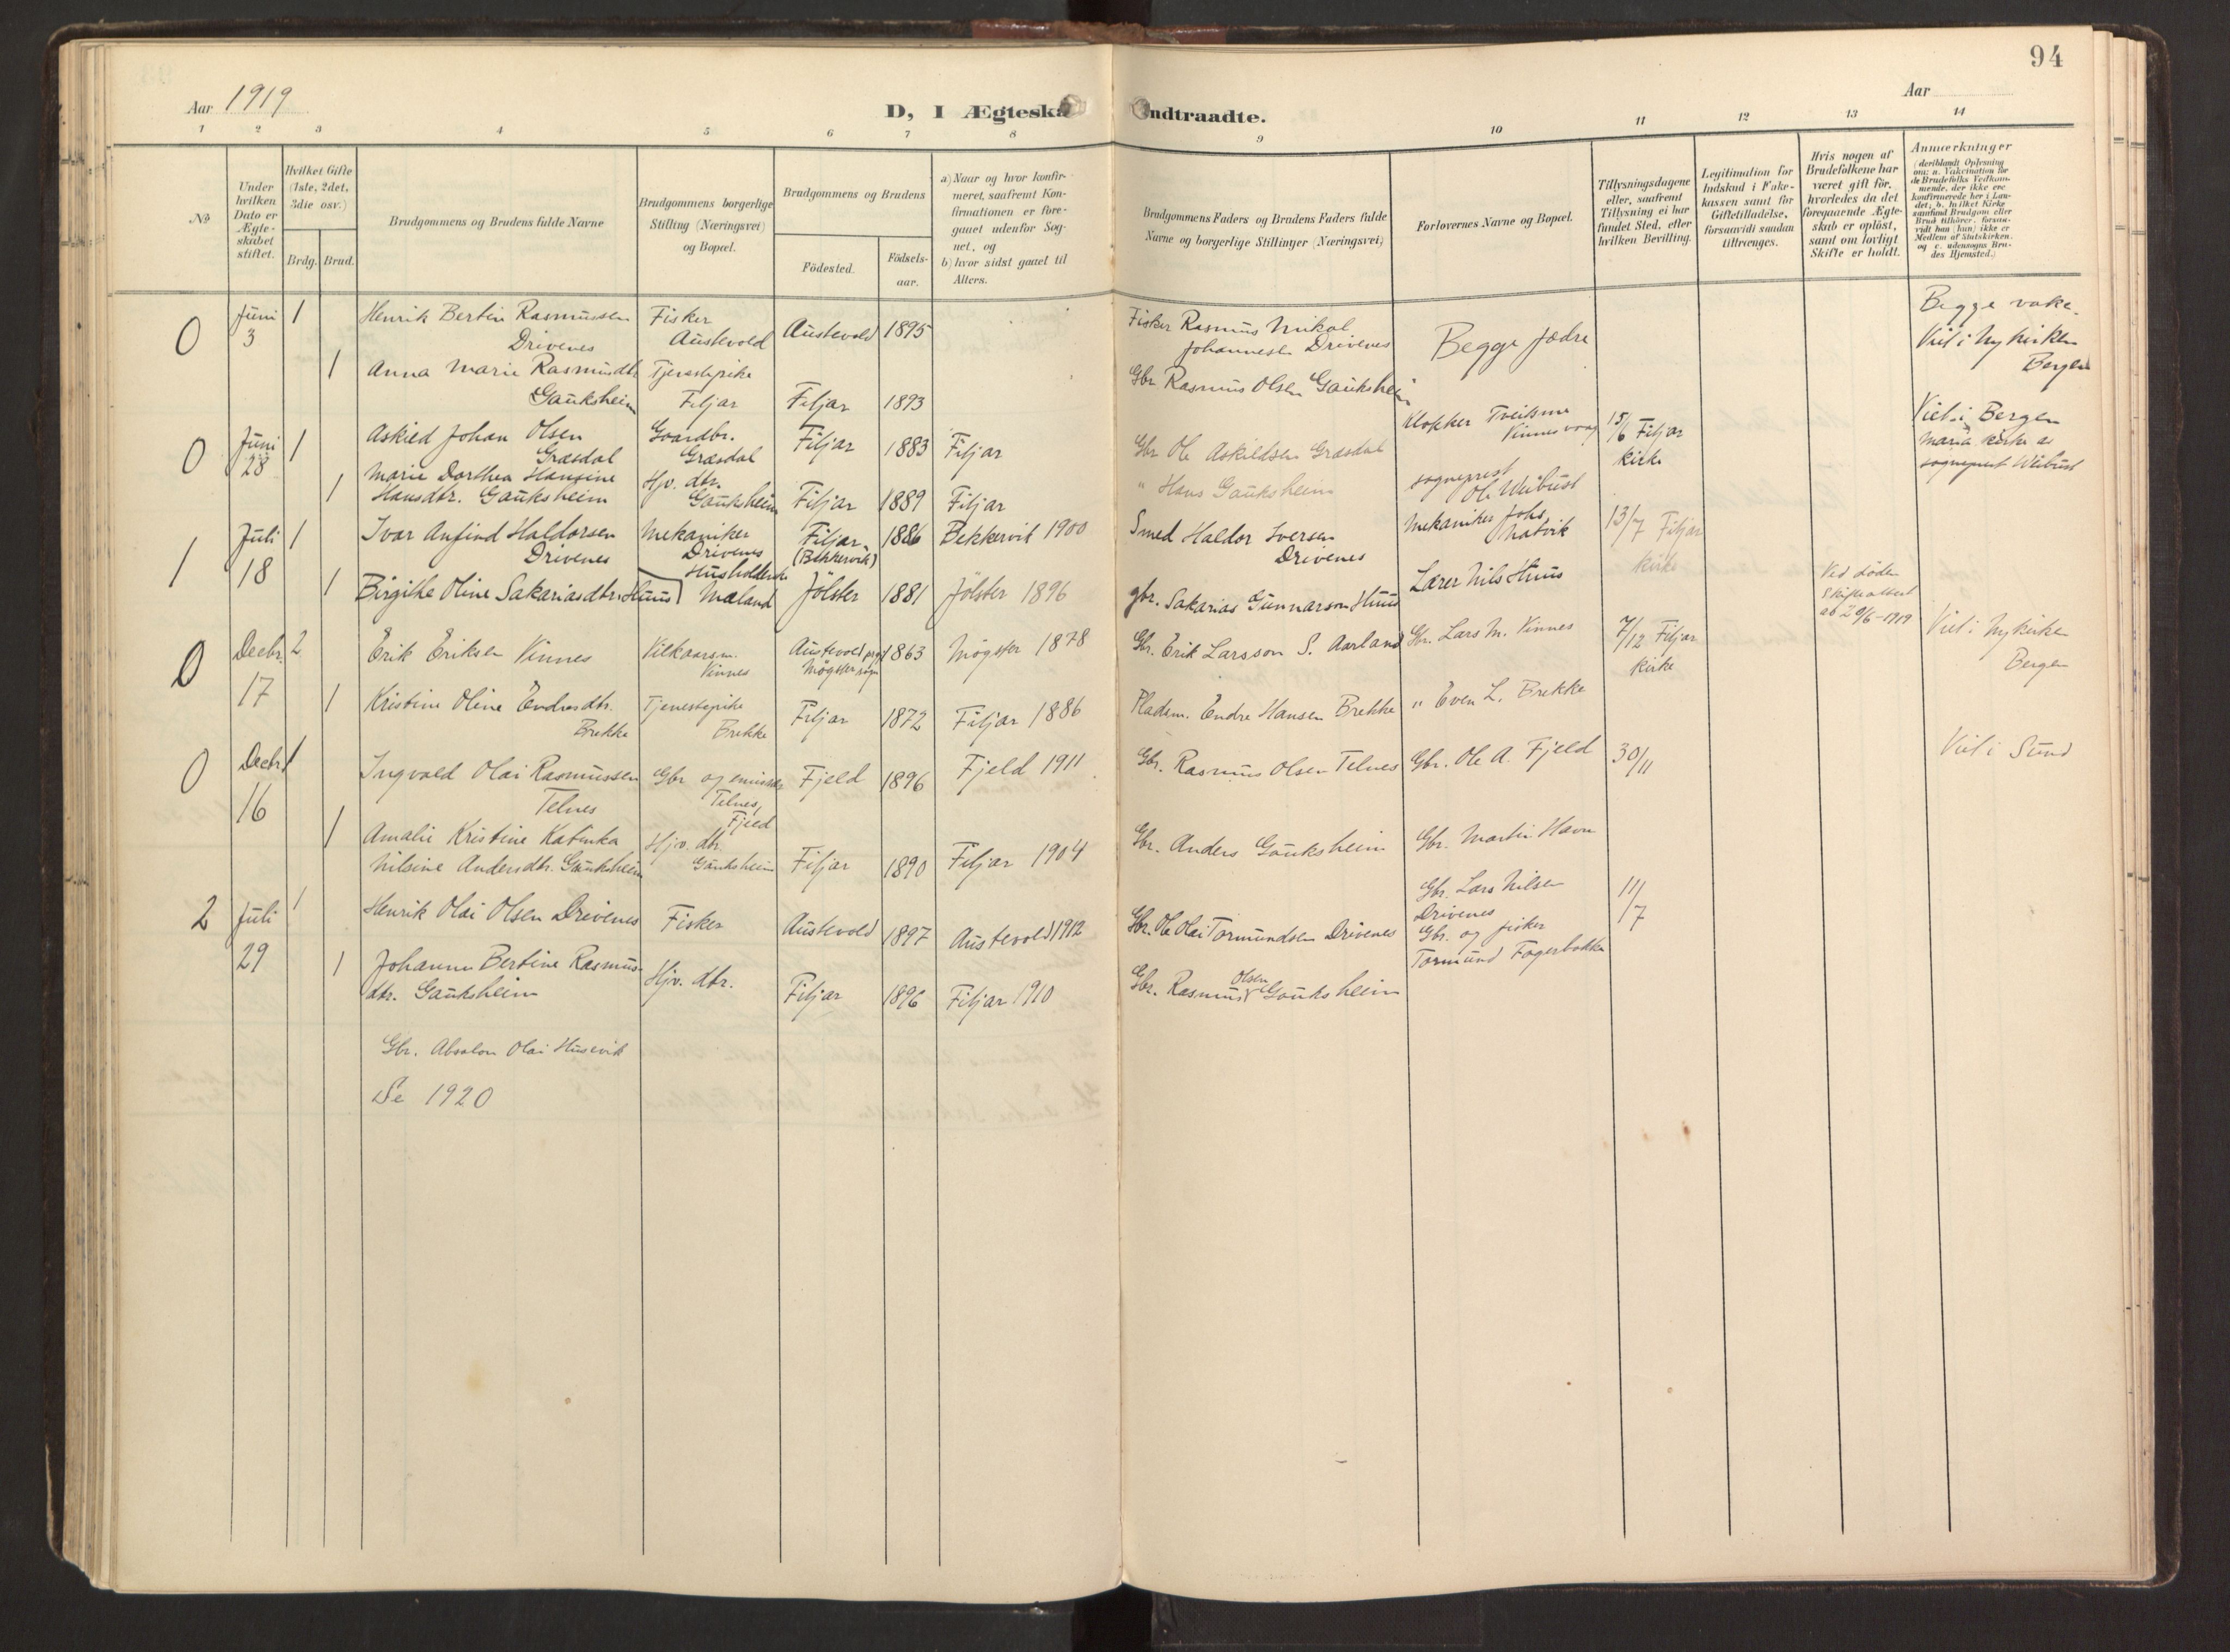 94
Aar 1919
D, I Ægteska
ndtraadte.
Aar
1 2 3 4 5 6 7 8 9 10 11 12 13 14
No
Under hvilken Dato er Ægte-skabet stiftet.
Hvilket Gifte (1ste, 2det, 3die osv.)
Brdg. Brud.
Brudgommens og Brudens fulde Navne
Brudgommens borgerlige Stilling (Næringsvei) og Bopæl.
Brudgommens og Brudens
Födested.
Födsels-aar.
a) Naar og hvor konfir-meret, saafremt Kon-firmationen er fore-gaaet udenfor Sog-net, og
b) hvor sidst gaaet til Alters.
Brudgommens Faders og Brudens Faders fulde Navne og borgerlige Stillinger (Næringsvei)
Forlovernes Navne og Bopæl.
Tillysningsdagene eller, saafremt Tillysning ei har fundet Sted, efter hvilken Bevilling.
Legitimation for Indskud i Enke-kassen samt for Giftetilladelse, forsaavidt saadan tiltrænges.
Hvis nogen af Brudefolkene har været gift før, hvorledes da det foregaaende Ægte-skab er opløst, samt om lovligt Skifte er holdt.
Anmærkninger
0 Juni 3 1 Henrik Bertin Rasmussen Drivenes Fisker Austevold Austevold 1895 Fisker Rasmus Nikol. Johannesen Drivenes Begge fædre Begge vake. Viet i Nykirken Bergen
1 Anna Marie Rasmusdtr. Gauksheim Tjenestepike Fitjar Fitjar 1893 Gbr Rasmus Olsen Gauksheim
0 Juni 28 1 Askild Johan Olsen Græsdal Gaardbr. Græsdal Fitjar 1883 Fitjar Gbr Ole Askildsen Græsdal Klokker Tveitsme Vinnesvaag 15/6 Fitjar kirke Viet i Bergen Maria kirke av sogneprest Weibust
1 Marie Dorthea Hansine Hansdtr. Gauksheim Hjv. dtr. Gauksheim Fitjar 1889 Fitjar " Hans Gauksheim sogneprest Ole Weibust
1 Juli 18 1 Ivar Anfind Haldorsen Drivenes Mekaniker Drivenes Fitjar (Bekkervik) 1886 Bekkervik 1900 Smed Haldor Iversen Drivenes Mekaniker Johs. Natvik 13/7 Fitjar kirke
1 Birgithe Oline Sakariasdtr. Huus Husholderske Mæland Jölster 1881 Jölster 1896 gbr. Sakarias Gunnarson Huus Lærer Nils Huus
0 Decbr. 17 2 Erik Eriksen Vinnes Vilkaarsm. Vinnes Austevold prgj. Møgster sogn 1863 Møgster 1878 Gbr. Erik Larsson S. Aarland Gbr. Lars M. Vinnes 7/12 Fitjar kirke Ved döden Skifteattest ab 20/6-1919 Viet i Nykirken Bergen
1 Kristine Oline Endresdtr. Brekke Tjenestepike Brekke Fitjar 1872 Fitjar 1886 Pladsm. Endre Hansen Brekke " Even L. Brekke
0 Decbr. 16 1 Ingvald Olai Rasmussen Telnes Gbr og emissær Telnes, Fjeld Fjeld 1896 Fjeld 1911 Gbr. Rasmus Olsen Telnes Gbr. Ole A. Fjeld 30/11 Viet i Sund
1 Amalie Kristine Katinka Nilsine Andersdtr. Gauksheim Hjv. dtr. Gauksheim Fitjar 1890 Fitjar 1904 Gbr. Anders Gauksheim Gbr. Martin Havn
2 Juli 29 1 Henrik Olai Olsen Drivenes Fisker Austevold 1897 Austevold 1912 Gbr. Ole Olai Tormundsen Drivenes Gbr. Lars Nilsen Drivenes 11/7
1 Johanne Bertine Rasmus-dtr. Gauksheim Hjv. dtr. Fitjar 1896 Fitjar 1910 Gbr. Rasmus Olsen Gauksheim Gbr. og fisker Tormund Fagerbakke
Gbr. Absalon Olai Husevik
Se 1920